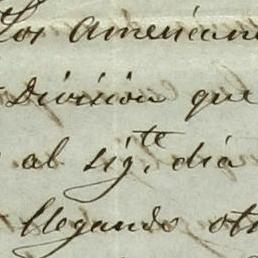 Los American
Division que
al sig.te dia
llegando otr